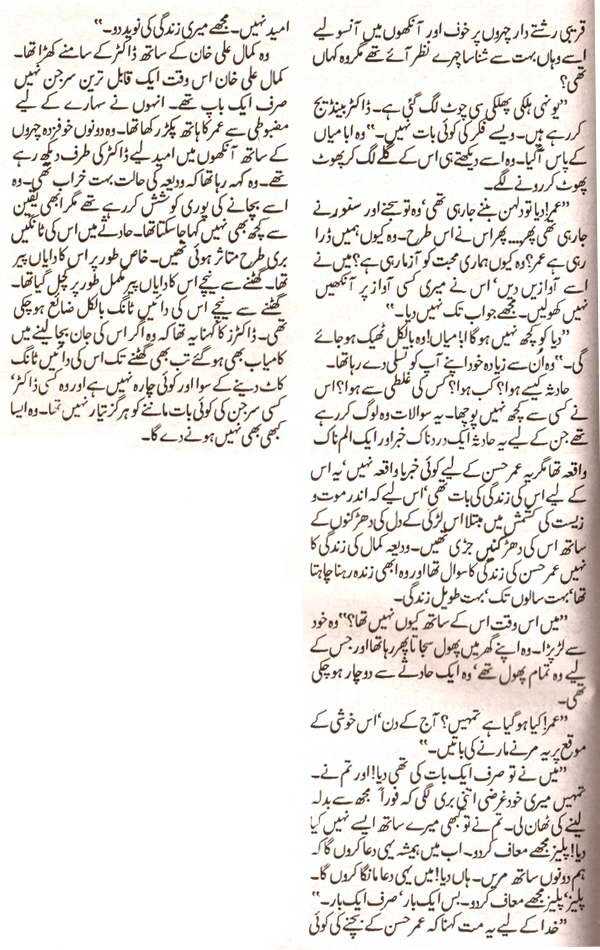 قریبی رشتے دار چہروں پر خوف اور آنکھوں میں آنسو لیے
اسے وہاں بہت سے شناسا چہرے نظر آئے تھے مگر وہ کہاں
تھی؟
”یونہی ہلکی پھلکی سی چوٹ لگ گئی ہے۔ ڈاکٹر بینڈیج
کر رہے ہیں۔ ویسے فکر کی کوئی بات نہیں۔“ وہ ابا میاں
کے پاس آ گیا۔ وہ اسے دیکھتے ہی اس کے گلے لگ کر پھوٹ
پھوٹ کر رونے لگے۔
”عمر! دیا تو دلہن بننے جا رہی تھی‘ وہ تو سجنے اور سنورنے
جا رہی تھی پھر.... پھر اس نے اس طرح۔ وہ کیوں ہمیں ڈرا
رہی ہے عمر؟ وہ کیوں ہماری محبت کو آزما رہی ہے؟ میں نے
اسے آوازیں دیں‘ اس نے میری کسی آواز پر آنکھیں
نہیں کھولیں۔ مجھے جواب تک نہیں دیا۔“
”دیا کو کچھ نہیں ہو گا ابا میاں! وہ بالکل ٹھیک ہو جائے
گی۔“ وہ اُن سے زیادہ خود اپنے آپ کو تسلی دے رہا تھا۔
حادثہ کیسے ہوا؟ کب ہوا؟ کس کی غلطی سے ہوا؟ اس
نے کسی سے کچھ نہیں پوچھا۔ یہ سوالات وہ لوگ کر رہے
تھے جن کے لیے یہ حادثہ ایک دردناک خبر اور ایک الم ناک
واقعہ تھا مگر یہ عمر حسن کے لیے کوئی خبر یا واقعہ نہیں‘ یہ اس
کے لیے اس کی زندگی کی بات تھی‘ اس لیے کہ اندر موت و
زیست کی کشمکش میں مبتلا اس لڑکی کے دل کی دھڑکنوں کے
ساتھ اس کی دھڑکنیں جڑی تھیں۔ ودیعہ کمال کی زندگی کا
نہیں عمر حسن کی زندگی کا سوال تھا اور وہ ابھی زندہ رہنا چاہتا
تھا‘ بہت سالوں تک‘ بہت طویل زندگی۔
”میں اس وقت اس کے ساتھ کیوں نہیں تھا؟“ وہ خود
سے لڑ پڑا۔ وہ اپنے گھر میں پھول سجاتا پھر رہا تھا اور جس کے
لیے وہ تمام پھول تھے‘ وہ ایک حادثے سے دوچار ہو چکی
تھی۔
”عمر! کیا ہو گیا ہے تمہیں؟ آج کے دن‘ اس خوشی کے
موقع پر یہ مرنے مارنے کی باتیں۔“
”میں نے تو صرف ایک بات کی تھی دیا! اور تم نے۔
تمہیں میری خود غرضی اتنی بری لگی کہ فوراً مجھ سے بدلہ
لینے کی ٹھان لی۔ تم نے تو کبھی میرے ساتھ ایسے نہیں کیا
دیا! پلیز مجھے معاف کر دو۔ اب میں ہمیشہ یہی دعا کروں گا کہ
ہم دونوں ساتھ مریں۔ ہاں دیا! میں یہی دعا مانگا کروں گا۔
پلیز‘ پلیز مجھے معاف کر دو۔ بس ایک بار‘ صرف ایک بار۔“
”خدا کے لیے یہ مت کہنا کہ عمر حسن کے بچنے کی کوئی
امید نہیں۔ مجھے میری زندگی کی نوید دو۔“
وہ کمال علی خان کے ساتھ ڈاکٹر کے سامنے کھڑا تھا۔
کمال علی خان اس وقت ایک قابل ترین سرجن نہیں
صرف ایک باپ تھے۔ انہوں نے سہارے کے لیے
مضبوطی سے عمر کا ہاتھ پکڑ رکھا تھا۔ وہ دونوں خوفزدہ چہروں
کے ساتھ آنکھوں میں امید لیے ڈاکٹر کی طرف دیکھ رہے
تھے۔ وہ کہہ رہا تھا کہ ودیعہ کی حالت بہت خراب تھی۔ وہ
اسے بچانے کی پوری کوشش کر رہے تھے مگر ابھی یقین
سے کچھ بھی نہیں کہا جا سکتا تھا۔ حادثے میں اس کی ٹانگیں
بری طرح متاثر ہوئی تھیں۔ خاص طور پر اس کا دایاں پیر
تھا۔ گھٹنے سے نیچے اس کا دایاں پیر مکمل طور پر کچل گیا تھا۔
گھٹنے سے نیچے اس کی دائیں ٹانگ بالکل ضائع ہو چکی
تھی۔ ڈاکٹرز کا کہنا یہ تھا کہ وہ اگر اس کی جان بچا لینے میں
کامیاب بھی ہو گئے تب بھی گھٹنے تک اس کی دائیں ٹانگ
کاٹ دینے کے سوا اور کوئی چارہ نہیں ہے اور وہ کسی ڈاکٹر‘
کسی سرجن کی کوئی بات ماننے کو ہرگز تیار نہیں تھا۔ وہ ایسا
کبھی بھی نہیں ہونے دے گا۔